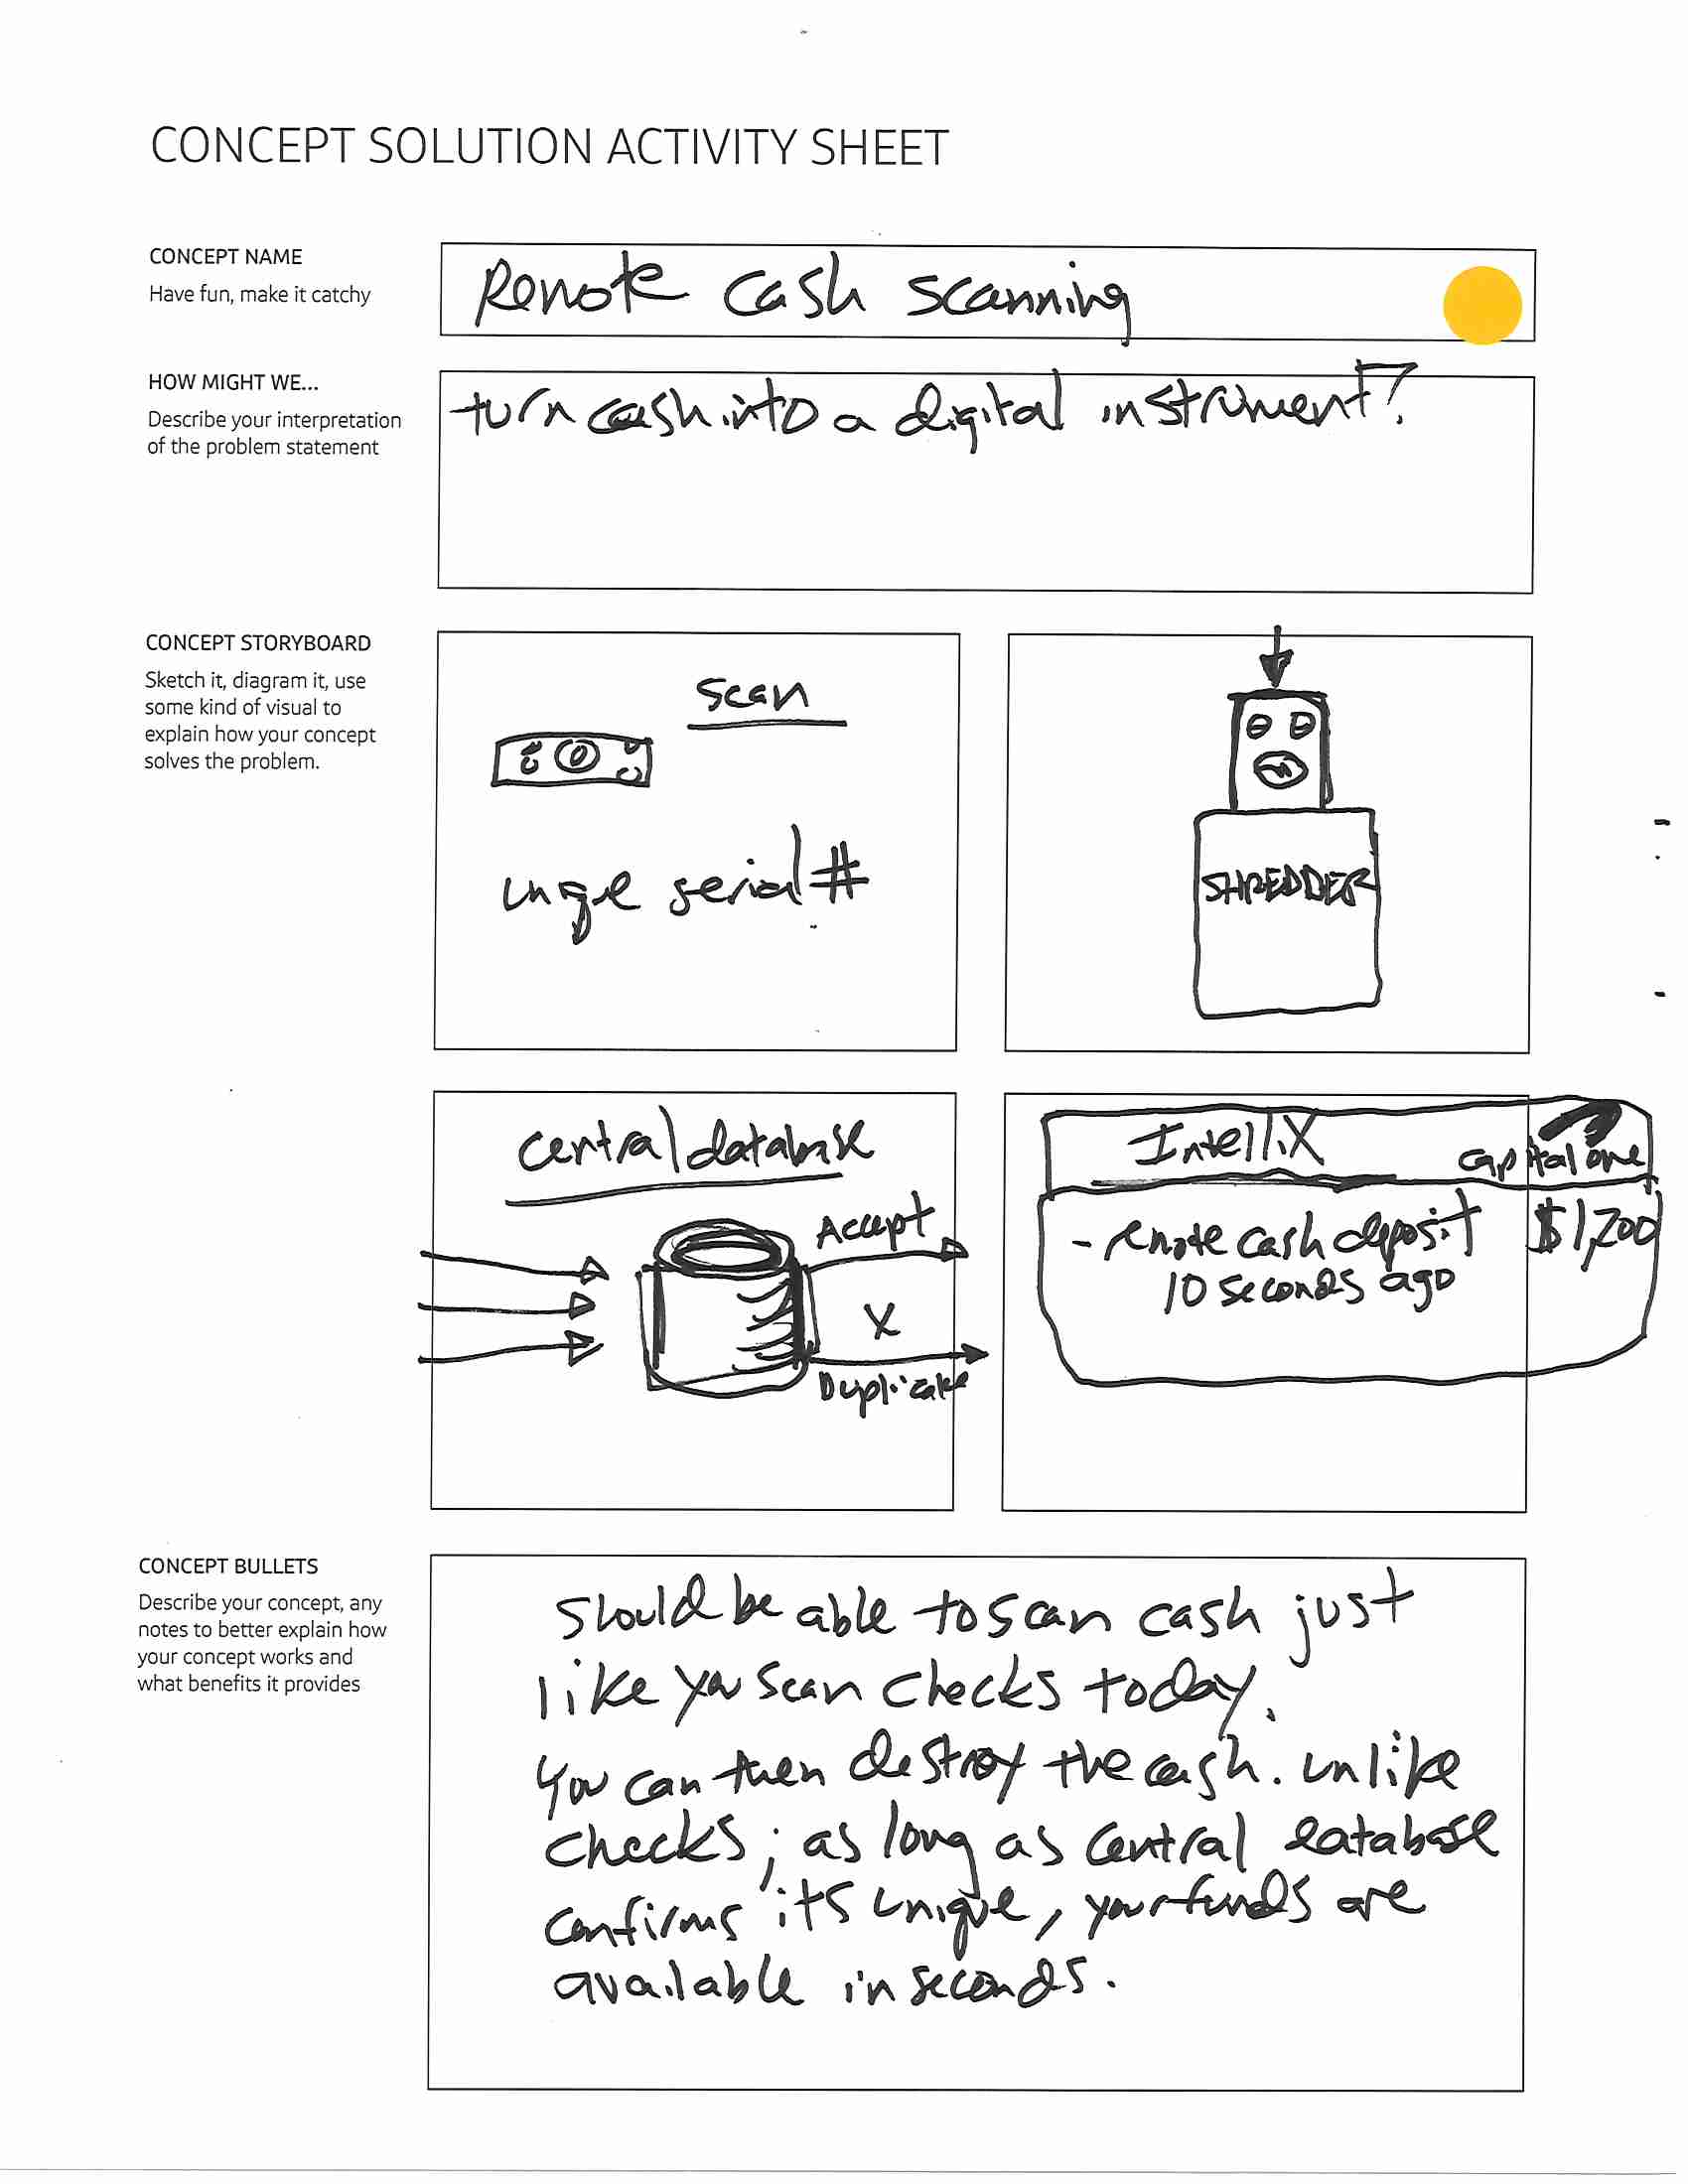 CONCEPT SOLUTION ACTIVITY SHEET
CONCEPT NAME
Have fun, make it catchy
Remote cash scanning
HOW MIGHT WE...
Describe your interpretation
of the problem statement
turn cash into a digital instrument?
CONCEPT STORYBOARD
Sketch it, diagram it, use
some kind of visual to
explain how your concept
solves the problem.
scan
unique serial #
SHREDDER
central database
Accept
X
Duplicate
IntelliX
Capital one
- remote cash deposit $1,200
10 seconds ago
CONCEPT BULLETS
Describe your concept, any
notes to better explain how
your concept works and
what benefits it provides
Should be able to scan cash just
like you scan checks today.
You can then destroy the cash. unlike
checks, as long as central database
confirms its unique, your funds are
available in seconds.